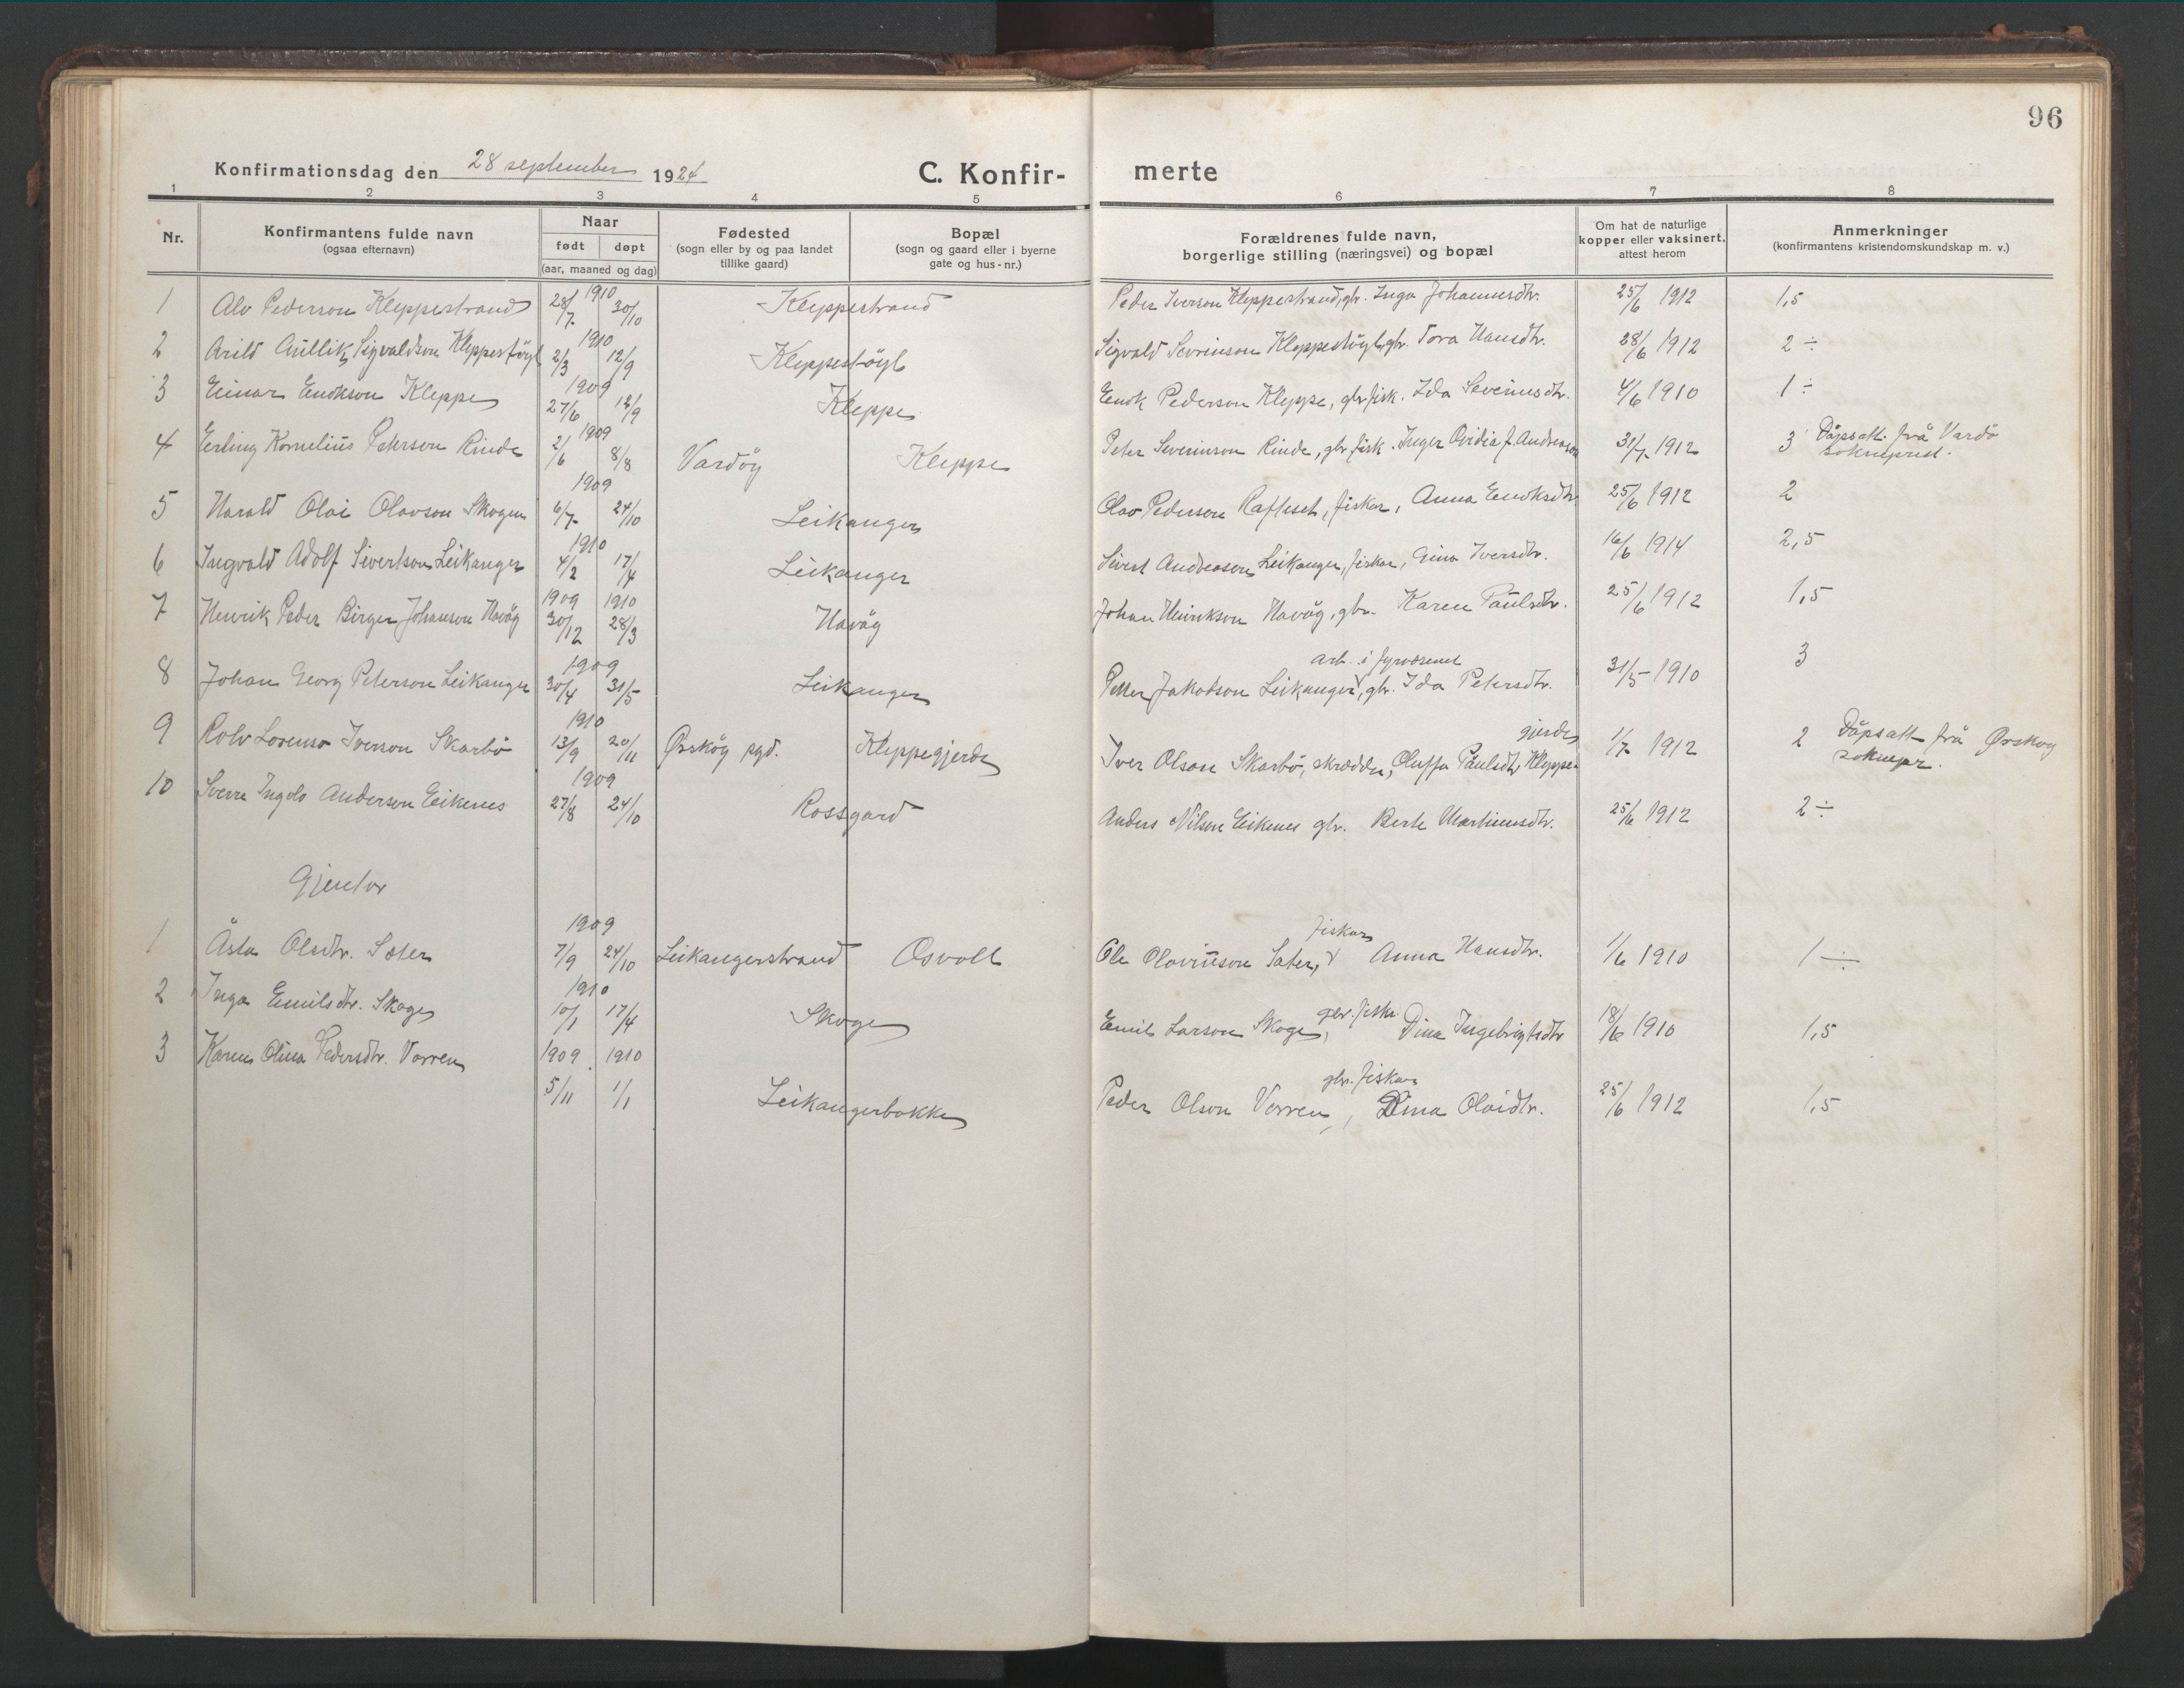 96
Konfirmationsdag den 28 september 1924 C. Konfir- merte
1 2 3 4 5 6 7 8
Nr. Konfirmantens fulde navn (ogsaa efternavn) Naar født døpt (aar, maaned og dag) Fødested (sogn eller by og paa landet tillike gaard) Bopæl (sogn og gaard eller i byerne gate og hus-nr.) Forældrenes fulde navn, borgerlige stilling (næringsvei) og bopæl Om hat de naturlige kopper eller vaksinert, attest herom Anmerkninger (konfirmantens kristendomskundskap m. v.)
1 Alv Pederson Kleppestrand 1910 28/7 30/10 Kleppestrand Peder Iverson Kleppestrand, gbr. Inga Johannesdtr. 25/6 1912 1,5
2 Arild Sigvaldson Kleppestøyl 1910 2/3 12/9 Kleppestøyl Sigvald Severinson Kleppestøyl, gbr. Tora Hansdtr. 28/6 1912 2 ÷
3 Einar Enokson Kleppe 1909 27/6 12/9 Kleppe Enok Pederson Kleppe, gbr. fisk. Ida Severinsdtr. 4/6 1910 1 ÷
4 Erling Kornelius Peterson Rinde 1909 2/6 8/8 Vardöy Kleppe Peter Severinson Rinde, gbr. fisk. Inger Ovidia f. Andreason 31/7 1912 3 Dåpsatt. frå Vardø
sokneprest.
5 Harald Olai Olavson Skogen 1909 6/7 24/10 Leikanger Olav Pederson Rafteset, fiskar, Anna Enoksdtr. 25/6 1912 2
6 Ingvald Adolf Sivertson Leikanger 1910 4/2 17/4 Leikanger Sivert Andreasen Leikanger, fiskar, Gina Iversdtr. 16/6 1914 2,5
7 Henrik Peder Birger Johanson Havåg 1909 30/12 1910 28/3 Havåg Johan Henrikson Havåg, gbr. Karen Paulsdtr. 25/6 1912 1,5
8 Johan Georg Peterson Leikanger 1909 30/4 31/5 Leikanger Petter Jakobson Leikanger, arb. i fyrvæsenet gbr. Ida Petersdtr. 31/5 1910 3
9 Rolv Lorenso Iverson Skarbö 1910 13/9 20/11 Ørskög pgd. Kleppegjerde Iver Olson Skarbö, skrædder, Oluffa Paulsdtr, Kleppe-
gjerde 1/7 1912 2 Dåpsatt frå Ørskog
soknepr.
10 Sverre Ingolv Anderson Eikenes 1909 27/8 24/10 Rossgard Anders Nilsen Eikenes gbr. Berte Martinusdtr. 25/6 1912 2 ÷
Gjentor
1 Åsta Olsdtr. Sæter 1909 7/9 24/10 Leikangerstrand Osvoll Ole Sæter, fiskar Anna Hansdtr. 1/6 1910 1 ÷
2 Inga Emilsdtr. Skoge 1910 10/1 17/4 Skoge Emil Larson Skoge, gbr. fiskar Dina Ingebrigtsdtr 18/6 1910 1,5
3 Karen Olina Pedersdtr. Vorren 1909 5/11 1910 1/1 Leikangerbakke Peder Olson Vorren, gbr. fiskar Dina Olaidtr. 25/6 1912 1,5